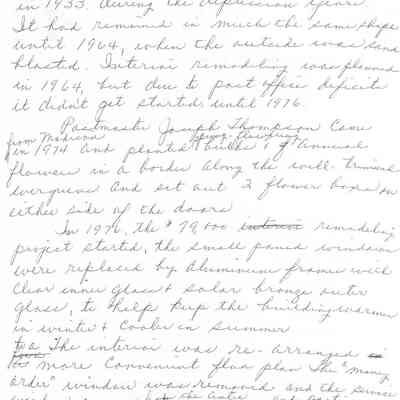 in 1933. during the depression years.
It had remained in much the same shape
until 1964, when the outside was sand
blasted. Interior remodeling was planned
in 1964, but due to post office deficits
it didn't get started until 1976.
Postmaster Joseph Thompson came
from Madison spring-flowering
in 1974 and planted bulbs & Annual
flowers in a border along the well-trimmed
evergreens and set out 2 flower boxes on
either side of the doors
In 1976, the $79,000 interior remodeling
project started, the small paned windows
were replaced by Aluminum frame with
clear inner glass & solar bronze outer
glass, to help keep the building warmer
in winter & cooler in summer
to a The interior was re-arranged
more convenient floor plan The "money
order" window was removed and the service
the entire